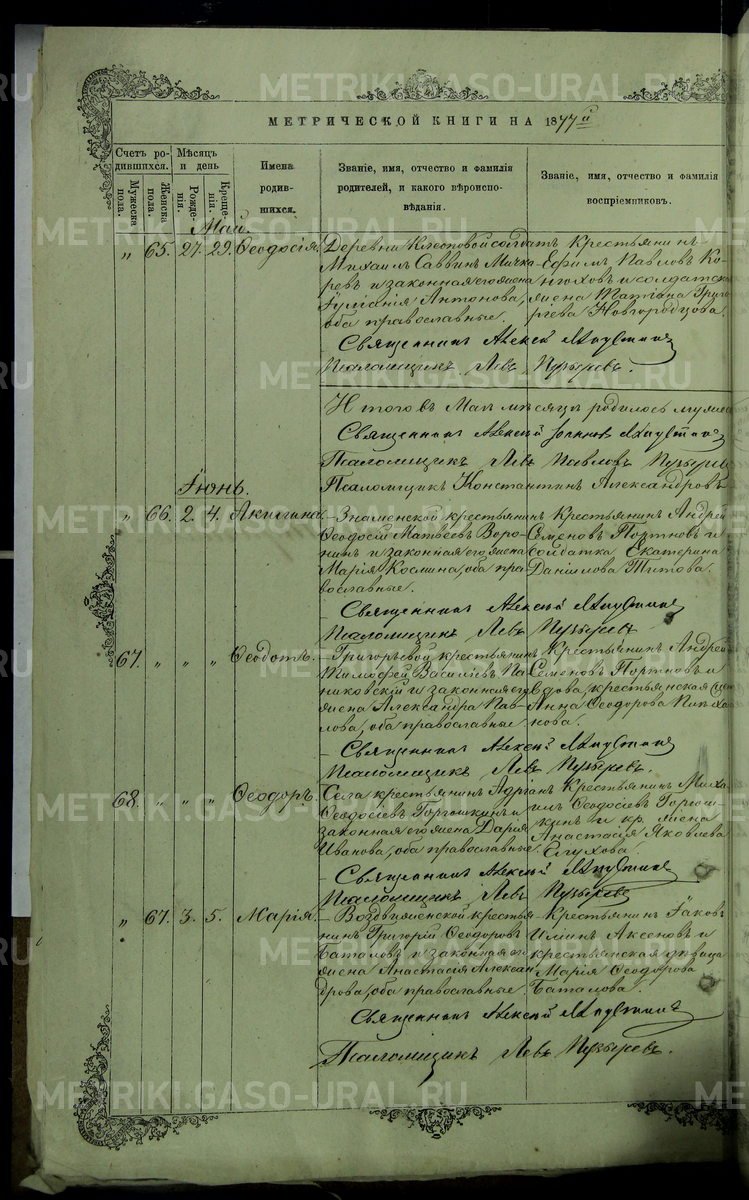 МЕТРИЧЕСКОЙ КНИГИ НА 1877й
Счетъ ро-
дившихся.
Мужеска пола.
Женска пола.
Мѣсяцъ
и день
Рожде-
нія.
Креще-
нія.
Имена
родив-
шихся.
Званіе, имя, отчество и фамилія
родителей, и какого вѣроиспо-
вѣданія.
Званіе, имя, отчество и фамилія
воспріемниковъ.
Май.
„ 65. 27. 29. Ѳеодосія.
Деревни солдатъ
Михаилъ Саввинъ Мичко-
ревъ и законная его жена
Іуліанія Антонова,
оба православные.
Крестьянинъ
Ефимъ Павловъ Ко-
нюховъ и солдатска
жена Татіана Григо-
ріева Новгородцова.
Священникъ Алексій
Псаломщикъ Левъ Пузыревъ.
Итого въ Маѣ мѣсяцѣ родилось мужеска
Священникъ Алексій
Псаломщикъ Левъ Павловъ Пузыревъ
Псаломщикъ Константинъ Александровъ
Іюнь.
„ 66. 2. 4. Акилина.
– Знаменской крестьянинъ
Ѳеодосій Матвеевъ Воро-
нинъ и законная его жена
Марія Космина, оба пра-
вославные.
Крестьянинъ Андрей
Семеновъ Портновъ и
солдатка Екатерина
Даніилова Титова.
Священникъ Алексій
Псаломщикъ Левъ Пузыревъ
67. „ „ „ Ѳеодотъ.
– Григорьевой крестьянинъ
Тимофей Васильевъ Па-
никовскій и законная его
жена Александра Пав-
лова, оба православные
Крестьянинъ Андрей
Семеновъ Портновъ и
вдова, крестьянская
Анна Ѳеодорова
нова.
– Священникъ Алексій
Псаломщикъ Левъ Пузыревъ.
68. „ „ „ Ѳеодоръ.
Села крестьянинъ Адріанъ
Ѳеодосіевъ Горюшкинъ и
законная его жена Дарія
Иванова, оба православные.
Крестьянинъ Миха-
илъ Ѳеодосіевъ Горюш-
кинъ и кр. жена
Анастасія Яковлева
Глухова.
– Священникъ Алексій
Псаломщикъ Левъ Пузыревъ
„ 67. 3. 5. Марія.
– Воздвиженской крестья-
нинъ Григорій Ѳеодоровъ
Баталовъ и законная его
жена Анастасія Алексан-
дрова, оба православные.
– Крестьянинъ Іаковъ
Ильинъ Аксеновъ и
крестьянская дѣвица
Марія Ѳеодорова
Баталова.
Священникъ Алексій
Псаломщикъ Левъ Пузыревъ.
METRIKI.GASO-URAL.RU